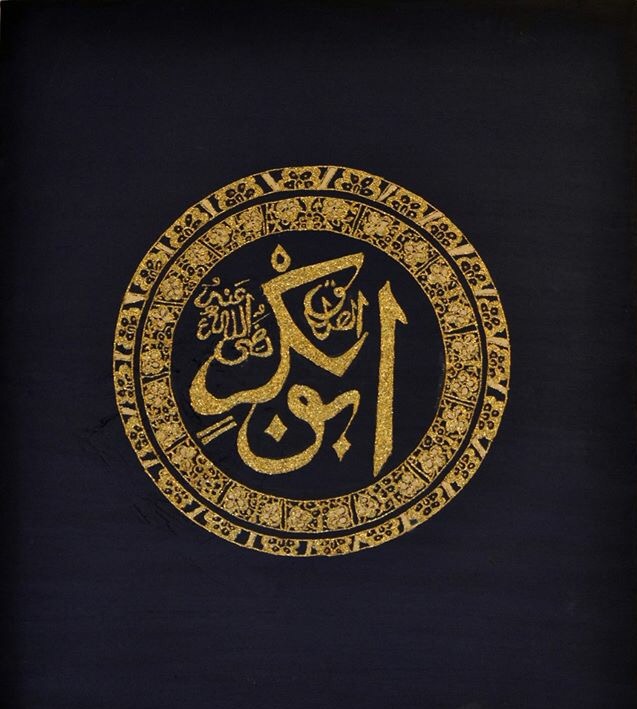 ابو بكرٍ
الصديق
رضي الله عنه